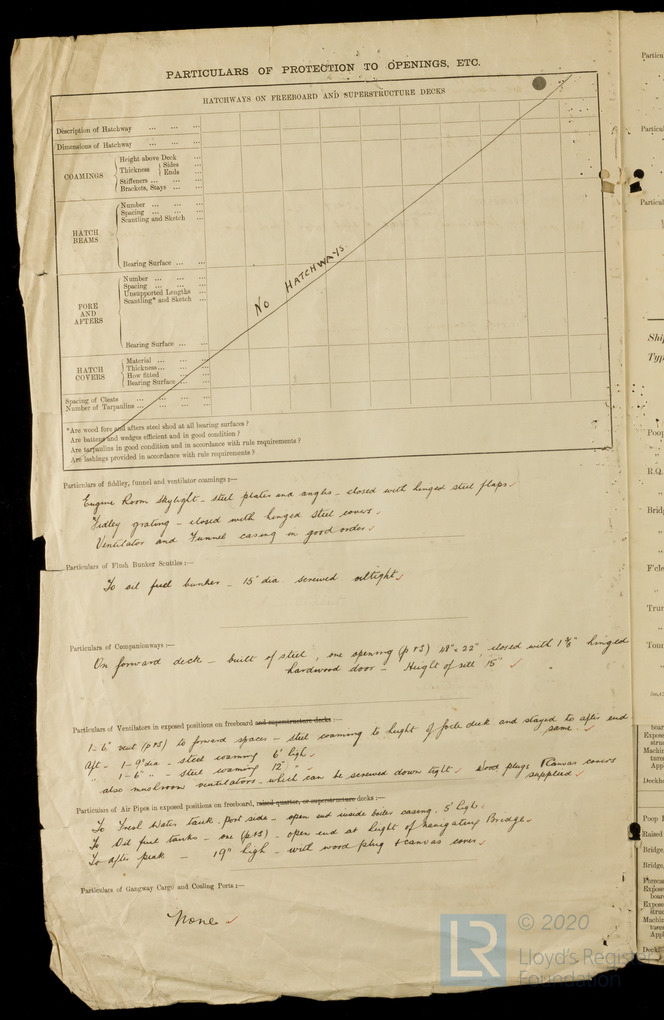 PARTICULARS OF PROTECTION TO OPENINGS, ETC.
HATCHWAYS ON FREEBOARD AND SUPERSTRUCTURE DECKS
Description of Hatchway ... ... ...
Dimensions of Hatchway ... ... ...
COAMINGS
Height above Deck ...
Thickness { Sides ...
Ends ...
Stiffeners ... ... ...
Brackets, Stays ... ...
HATCH BEAMS
Number ... ... ...
Spacing ... ... ...
Scantling and Sketch ...
Bearing Surface ... ...
FORE AND AFTERS
Number ... ... ...
Spacing ... ... ...
Unsupported Lengths ...
Scantling* and Sketch ...
Bearing Surface ... ...
HATCH COVERS
Material ... ... ...
Thickness ... ... ...
How fitted ... ...
Bearing Surface ... ...
Spacing of Cleats ... ... ...
Number of Tarpaulins ... ... ...
No HATCHWAYS.
*Are wood fore and afters steel shod at all bearing surfaces?
Are battens and wedges efficient and in good condition?
Are tarpaulins in good condition and in accordance with rule requirements?
Are lashings provided in accordance with rule requirements?
Particulars of fiddley, funnel and ventilator coamings:—
Engine Room Skylight - steel plates and angles - closed with hinged steel flaps.
Fidley grating - closed with hinged steel covers.
Ventilator and Funnel casing in good order.
Particulars of Flush Bunker Scuttles:—
To oil fuel bunker - 15" dia screwed oiltight.
Particulars of Companionways:—
On forward deck - built of steel, one opening (p & s) 48" x 22" closed with hinged
hardwood door - Height of sill 15"
Particulars of Ventilators in exposed positions on freeboard and superstructure decks:—
1-6" vent (p & s) to forward spaces - steel coaming to height of fo'cle deck and stayed to after end
same.
Aft - 1-9" dia - steel coaming 6' high.
" 1-6" " - steel coaming 12" "
also mushroom ventilators - which can be screwed down tight Wood plugs & canvas covers
supplied
Particulars of Air Pipes in exposed positions on freeboard, raised quarter, or superstructure decks:—
To Fresh Water tank port side - open end inside boiler casing 5' high.
To Oil fuel tanks - one (p & s) - open end at height of navigating Bridge.
To after peak - 19" high - with wood plug & canvas cover
Particulars of Gangway Cargo and Coaling Ports:—
None
© 2020
Lloyd's Register
Foundation
LR
Particu
Particul
Particula
Ship
Typ
Poop
R.Q.
Bridg
F'cle
Trun
Tonn
Poop
Raised
Bridge
Bridge,